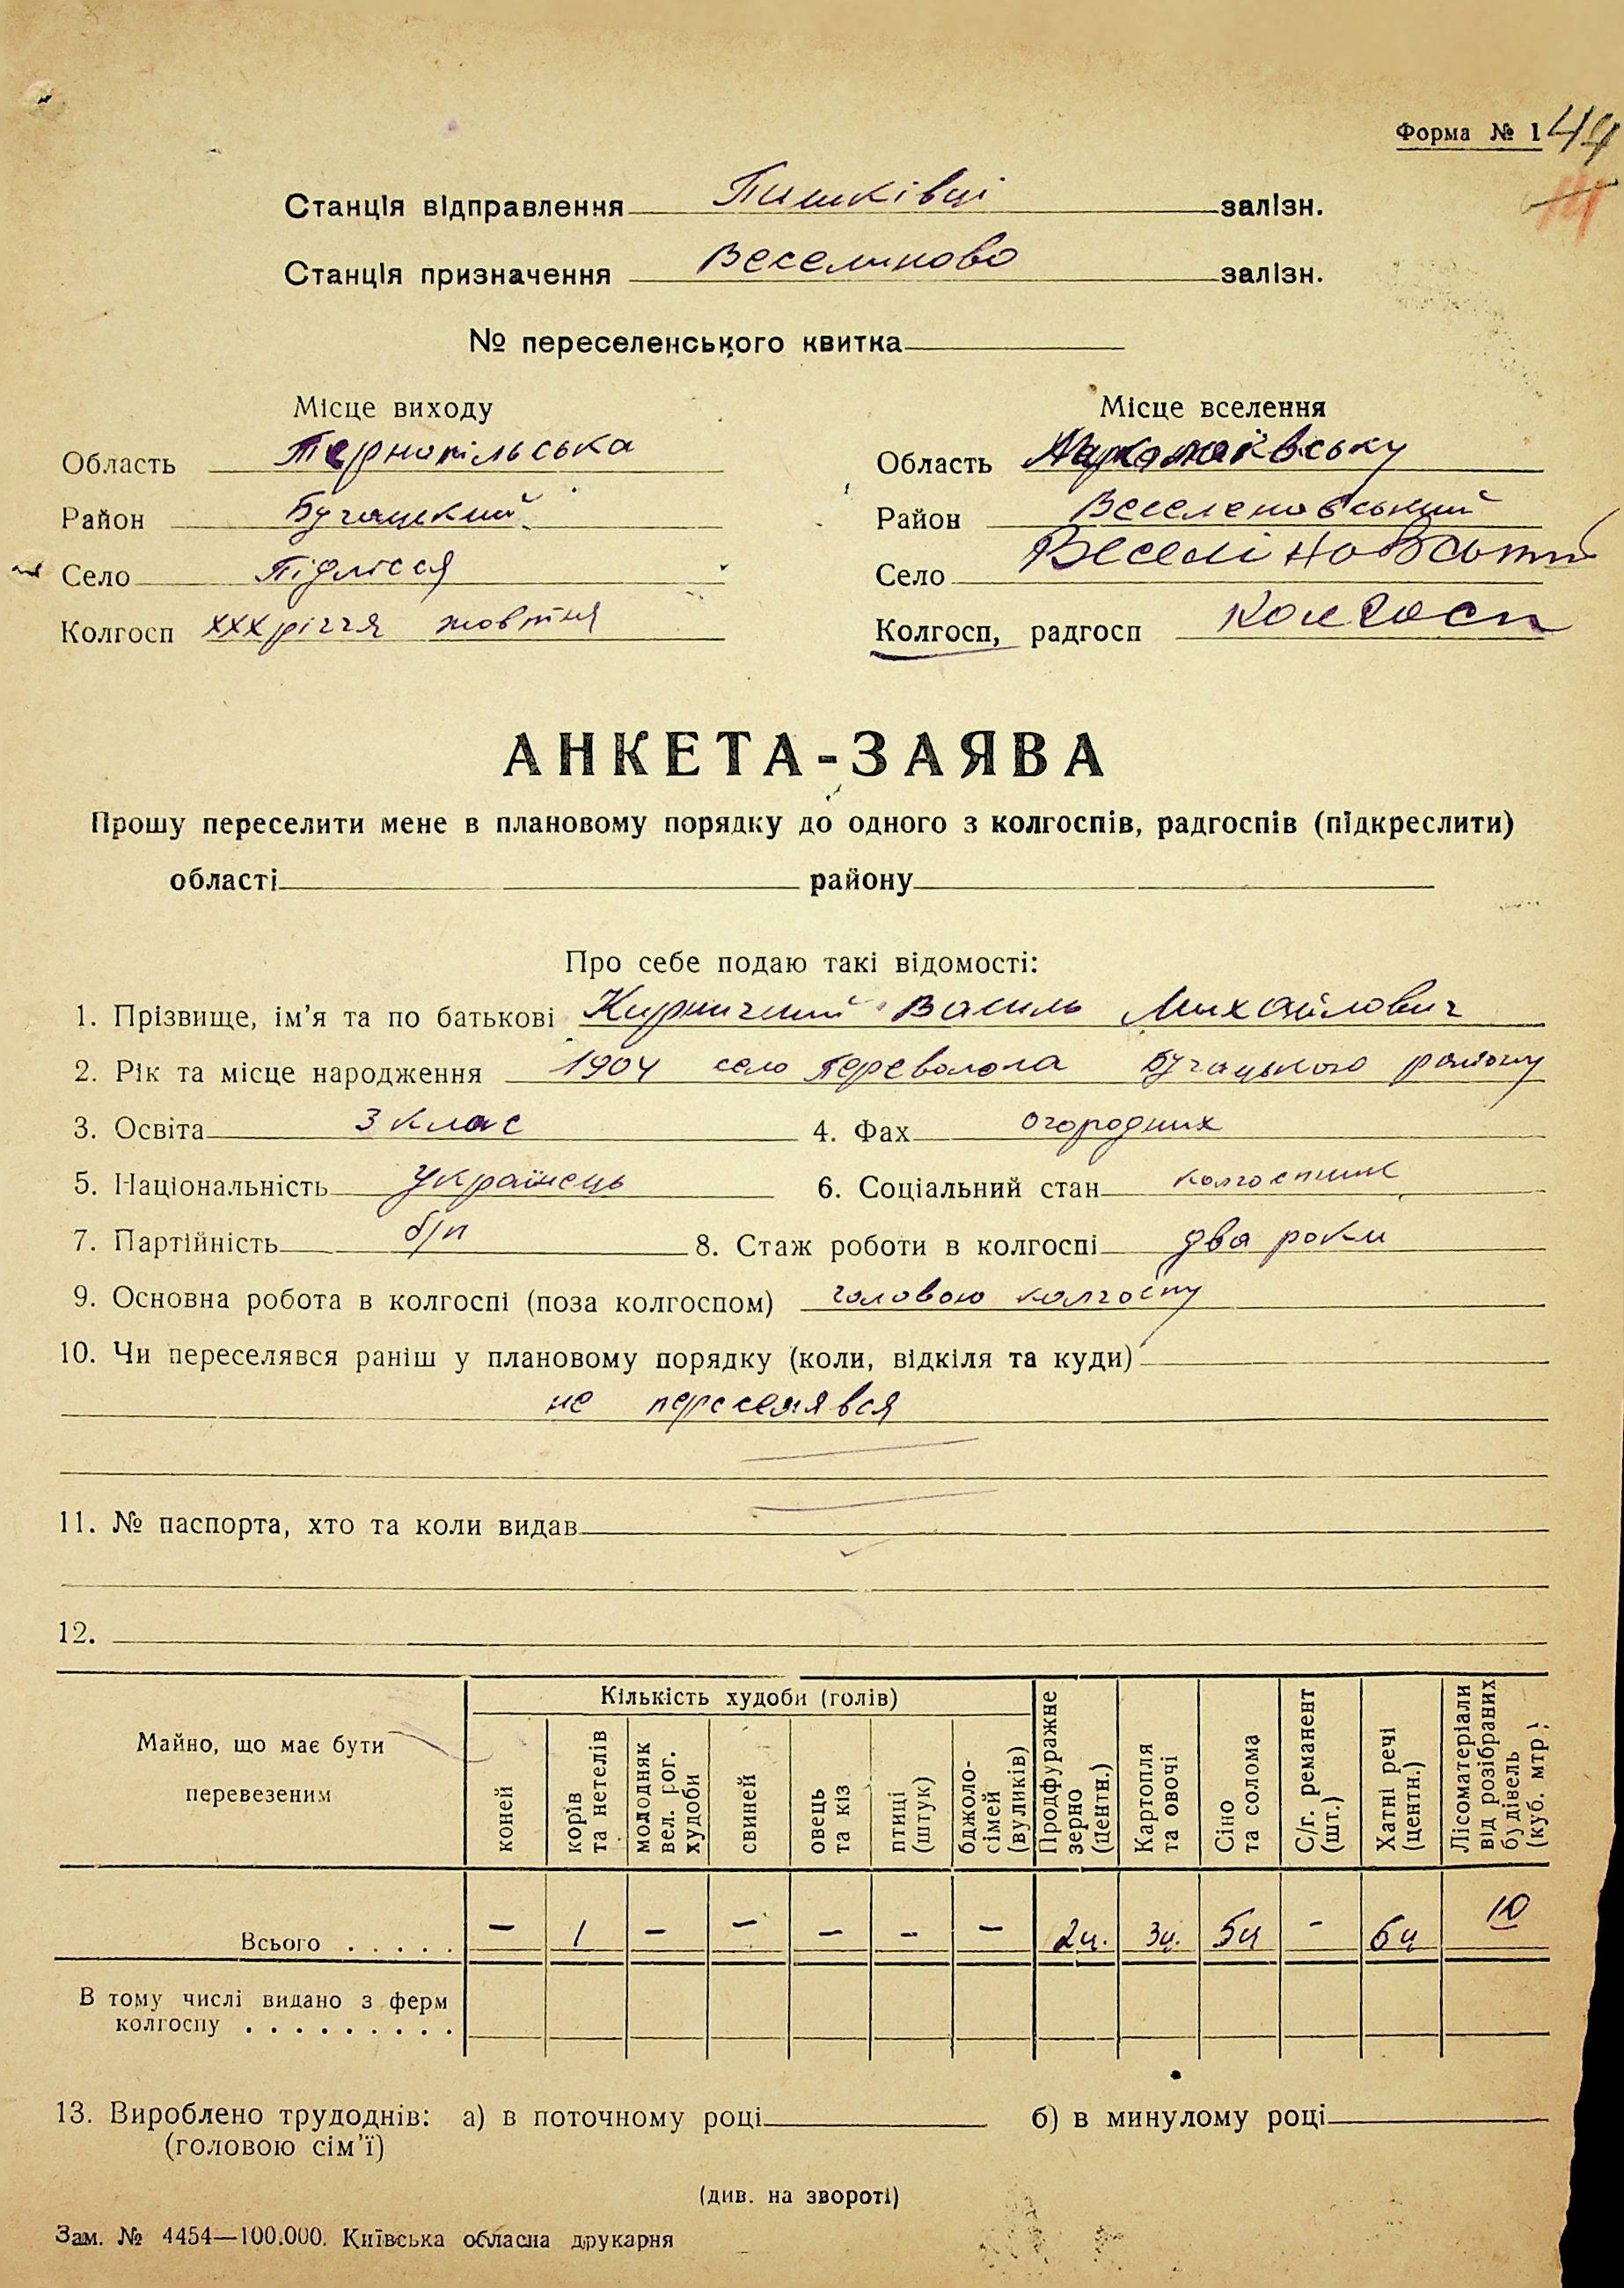 Форма № 1 44
Станція відправлення Пишківці залізн.
Станція призначення Веселиново залізн.
№ переселенського квитка
Місце виходу Місце вселення
Область Тернопільська Область
Район Бучацкий Район Веселеновський
Село Підлісся Село
Колгосп ХХХріччя жовтня Колгосп, радгосп Колгосп
АНКЕТА-ЗАЯВА
Прошу переселити мене в плановому порядку до одного з колгоспів, радгоспів (підкреслити)
області району
Про себе подаю такі відомості:
1. Прізвище, ім'я та по батькові Василь Михайлович
2. Рік та місце народження 1904 село Переволока Бучацького району
3. Освіта 3 клас 4. Фах огородник
5. Національність Українець 6. Соціальний стан колгоспник
7. Партійність б/п 8. Стаж роботи в колгоспі два роки
9. Основна робота в колгоспі (поза колгоспом) головою колгоспу
10. Чи переселявся раніш у плановому порядку (коли, відкіля та куди)
не переселявся
11. № паспорта, хто та коли видав
12.
Майно, що має бути перевезеним
Кількість худоби (голів)
коней
корів та нетелів
молодняк вел. рог. худоби
свиней
овець та кіз
птиці (штук)
бджоло-сімей (вуликів)
Продфуражне зерно (центн.)
Картопля та овочі
Сіно та солома
С/г. реманент (шт.)
Хатні речі (центн.)
Лісоматеріали від розібраних будівель (куб. мтр.)
Всього . . . . . — 1 — — — — — 2ц. 3ц. 5ц — 6ц 10
В тому числі видано з ферм
колгоспу . . . . . . . . .
13. Вироблено трудоднів: а) в поточному році б) в минулому році
(головою сім'ї)
(див. на звороті)
Зам. № 4454—100.000. Київська обласна друкарня